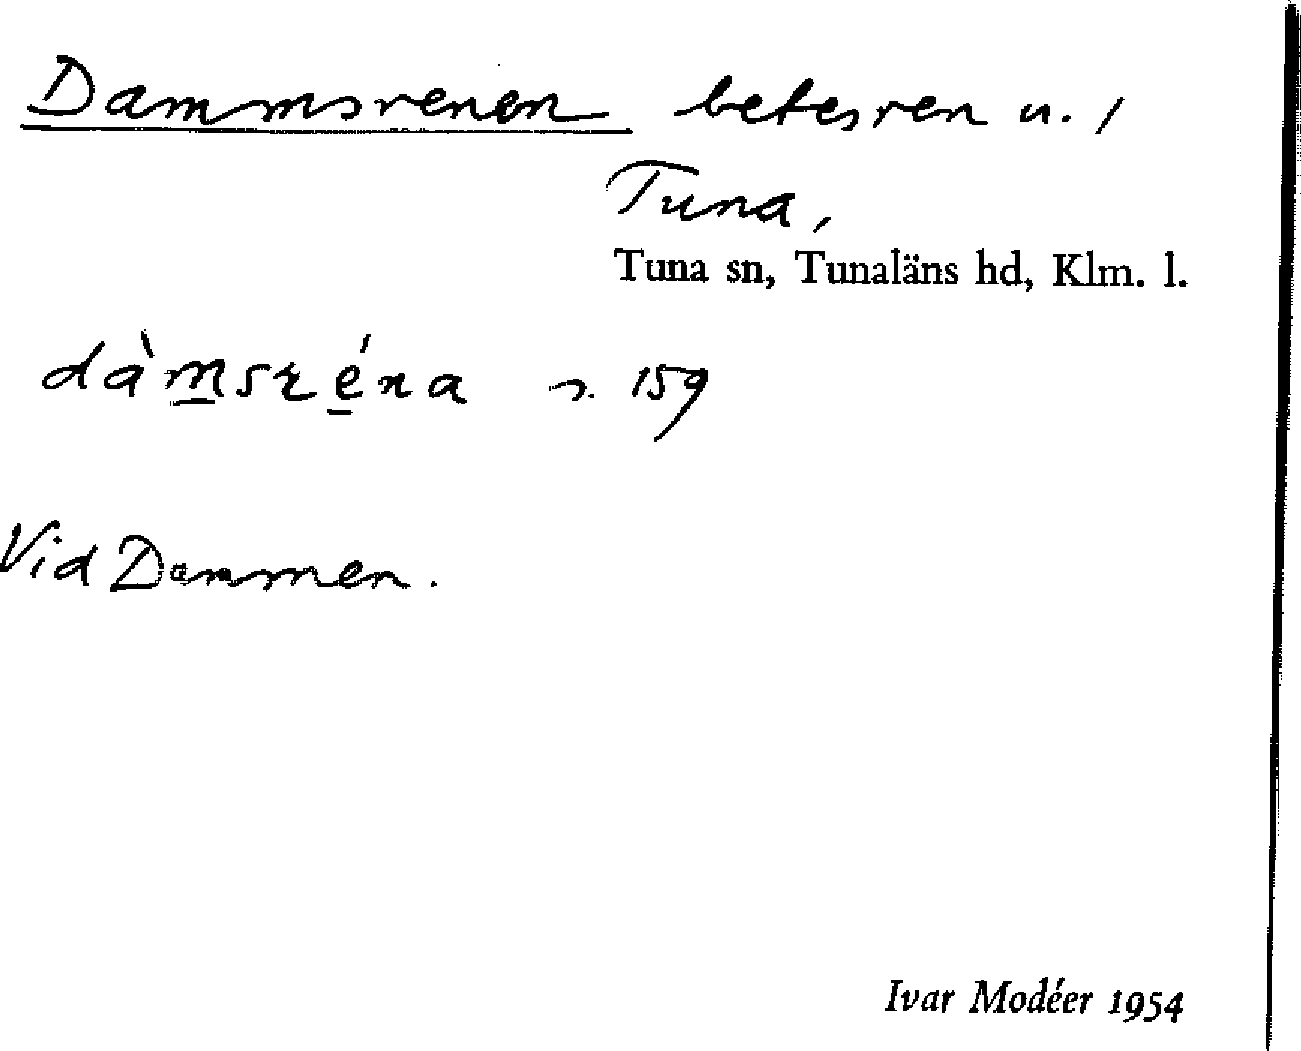 Dammsrenen betesren u. /
Tuna,
Tuna sn, Tunaläns hd, Klm. l.
dàmsréna s. 159
Vid Dammen.
Ivar Modéer 1954